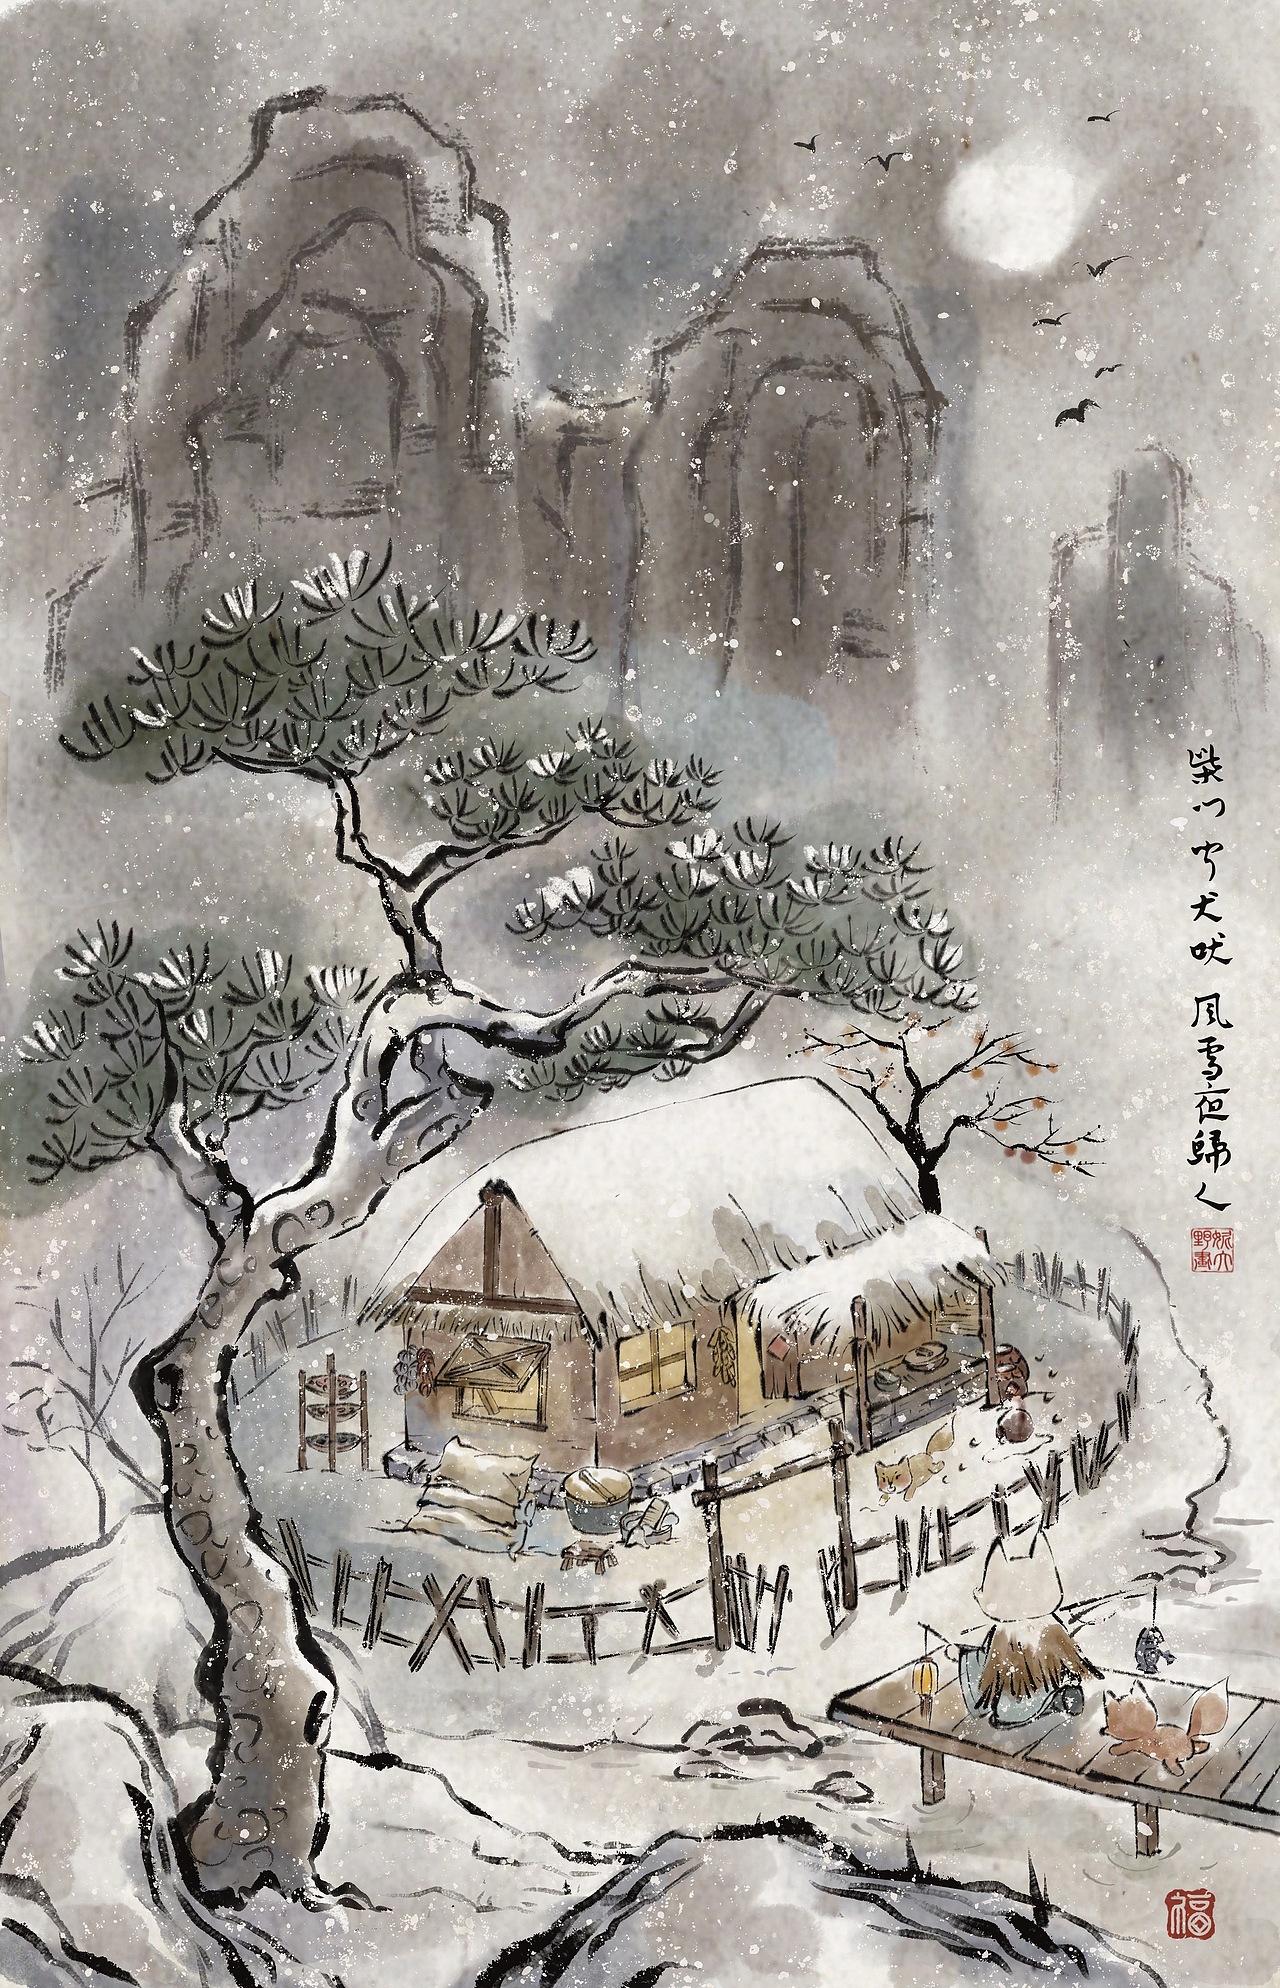 柴门闻犬吠 风雪夜歸人
福